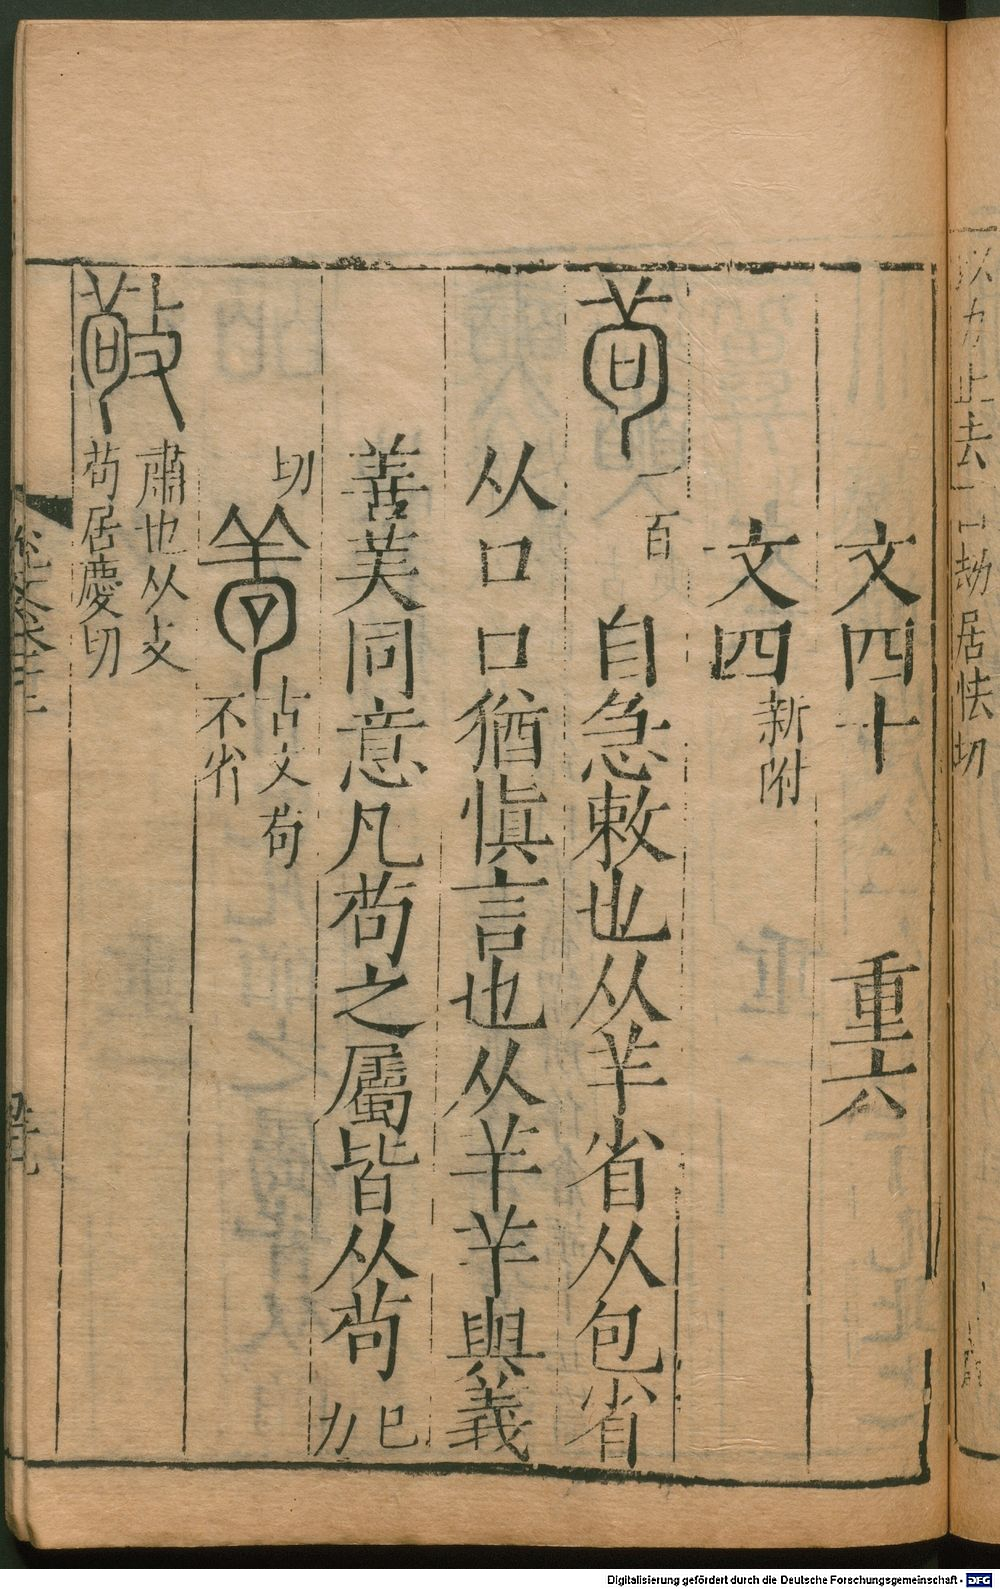 文四十　重六
文四新附
百
自急敕也从羊省从包省
从口口猶愼言也从羊羊與義
善美同意凡茍之屬皆从茍己力
切
古文茍
不省
肅也从攴
茍居慶切
以力止去
一曰劫居怯切
Digitalisierung gefördert durch die Deutsche Forschungsgemeinschaft - DFG